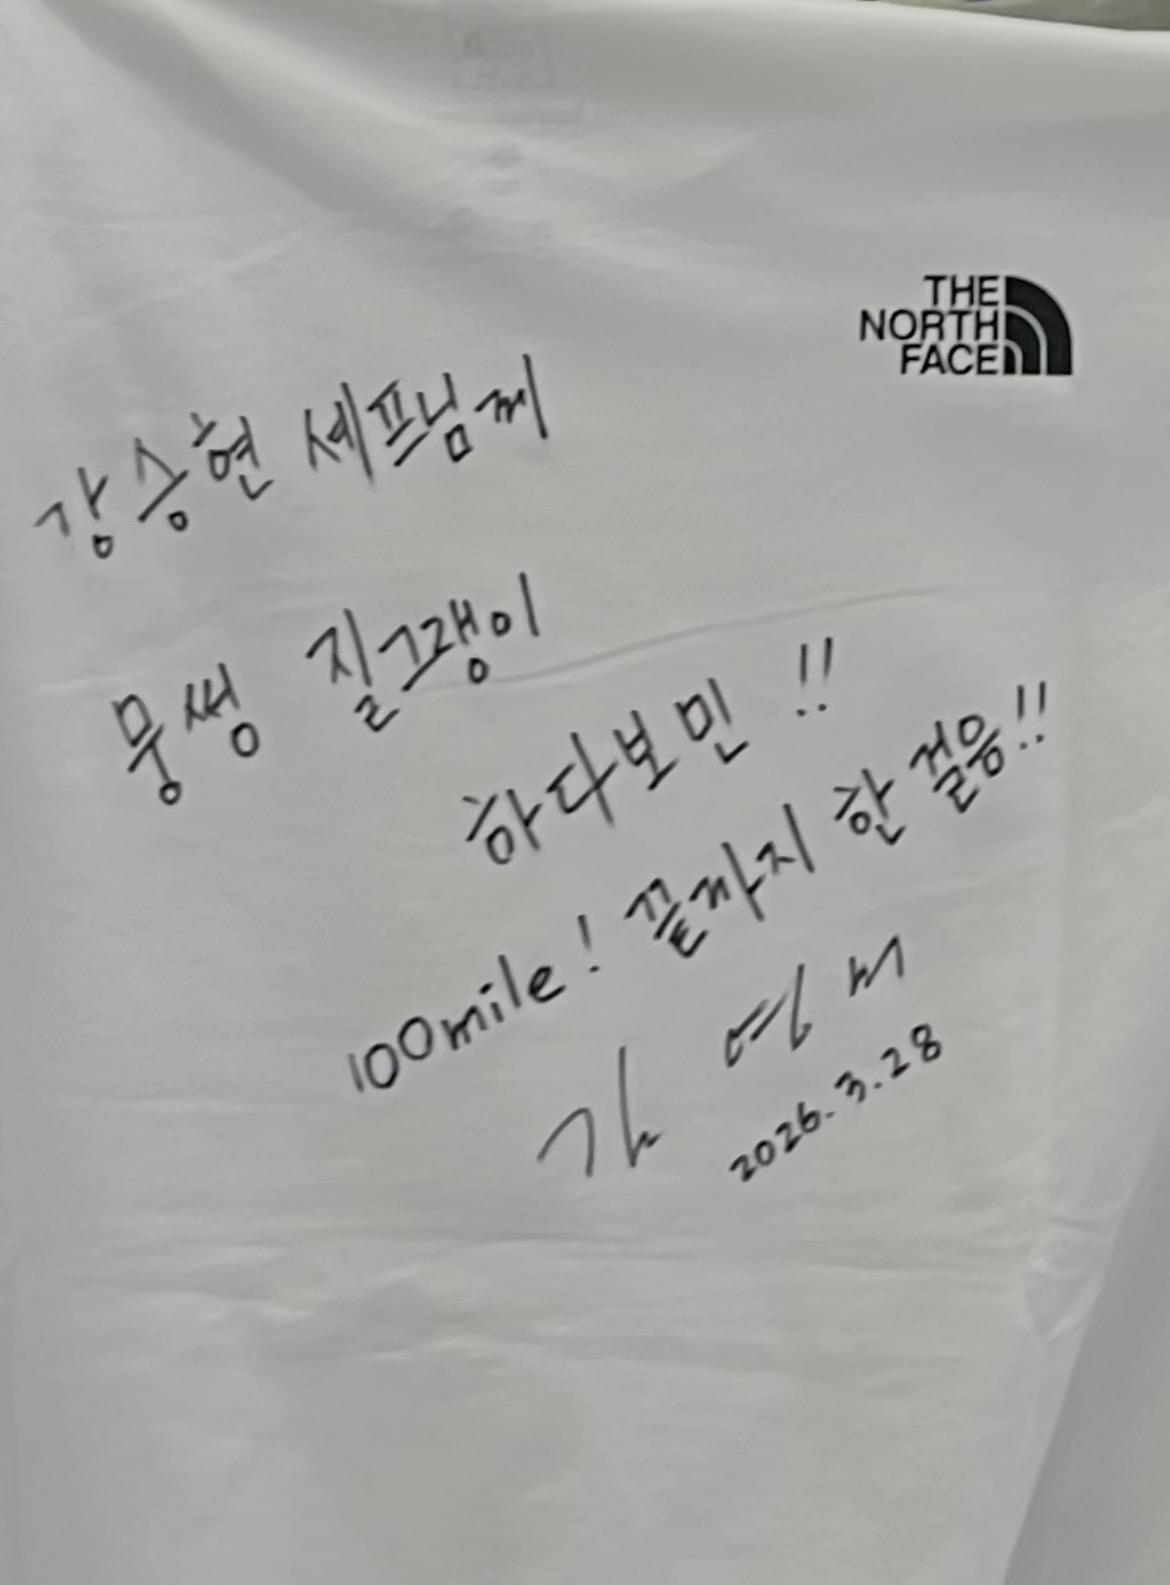 THE
NORTH
FACE
강승현 셰프님께
뭉썽 질그랭이
하다보민 !!
100mile! 끝까지 한 걸음!!
2026.3.28